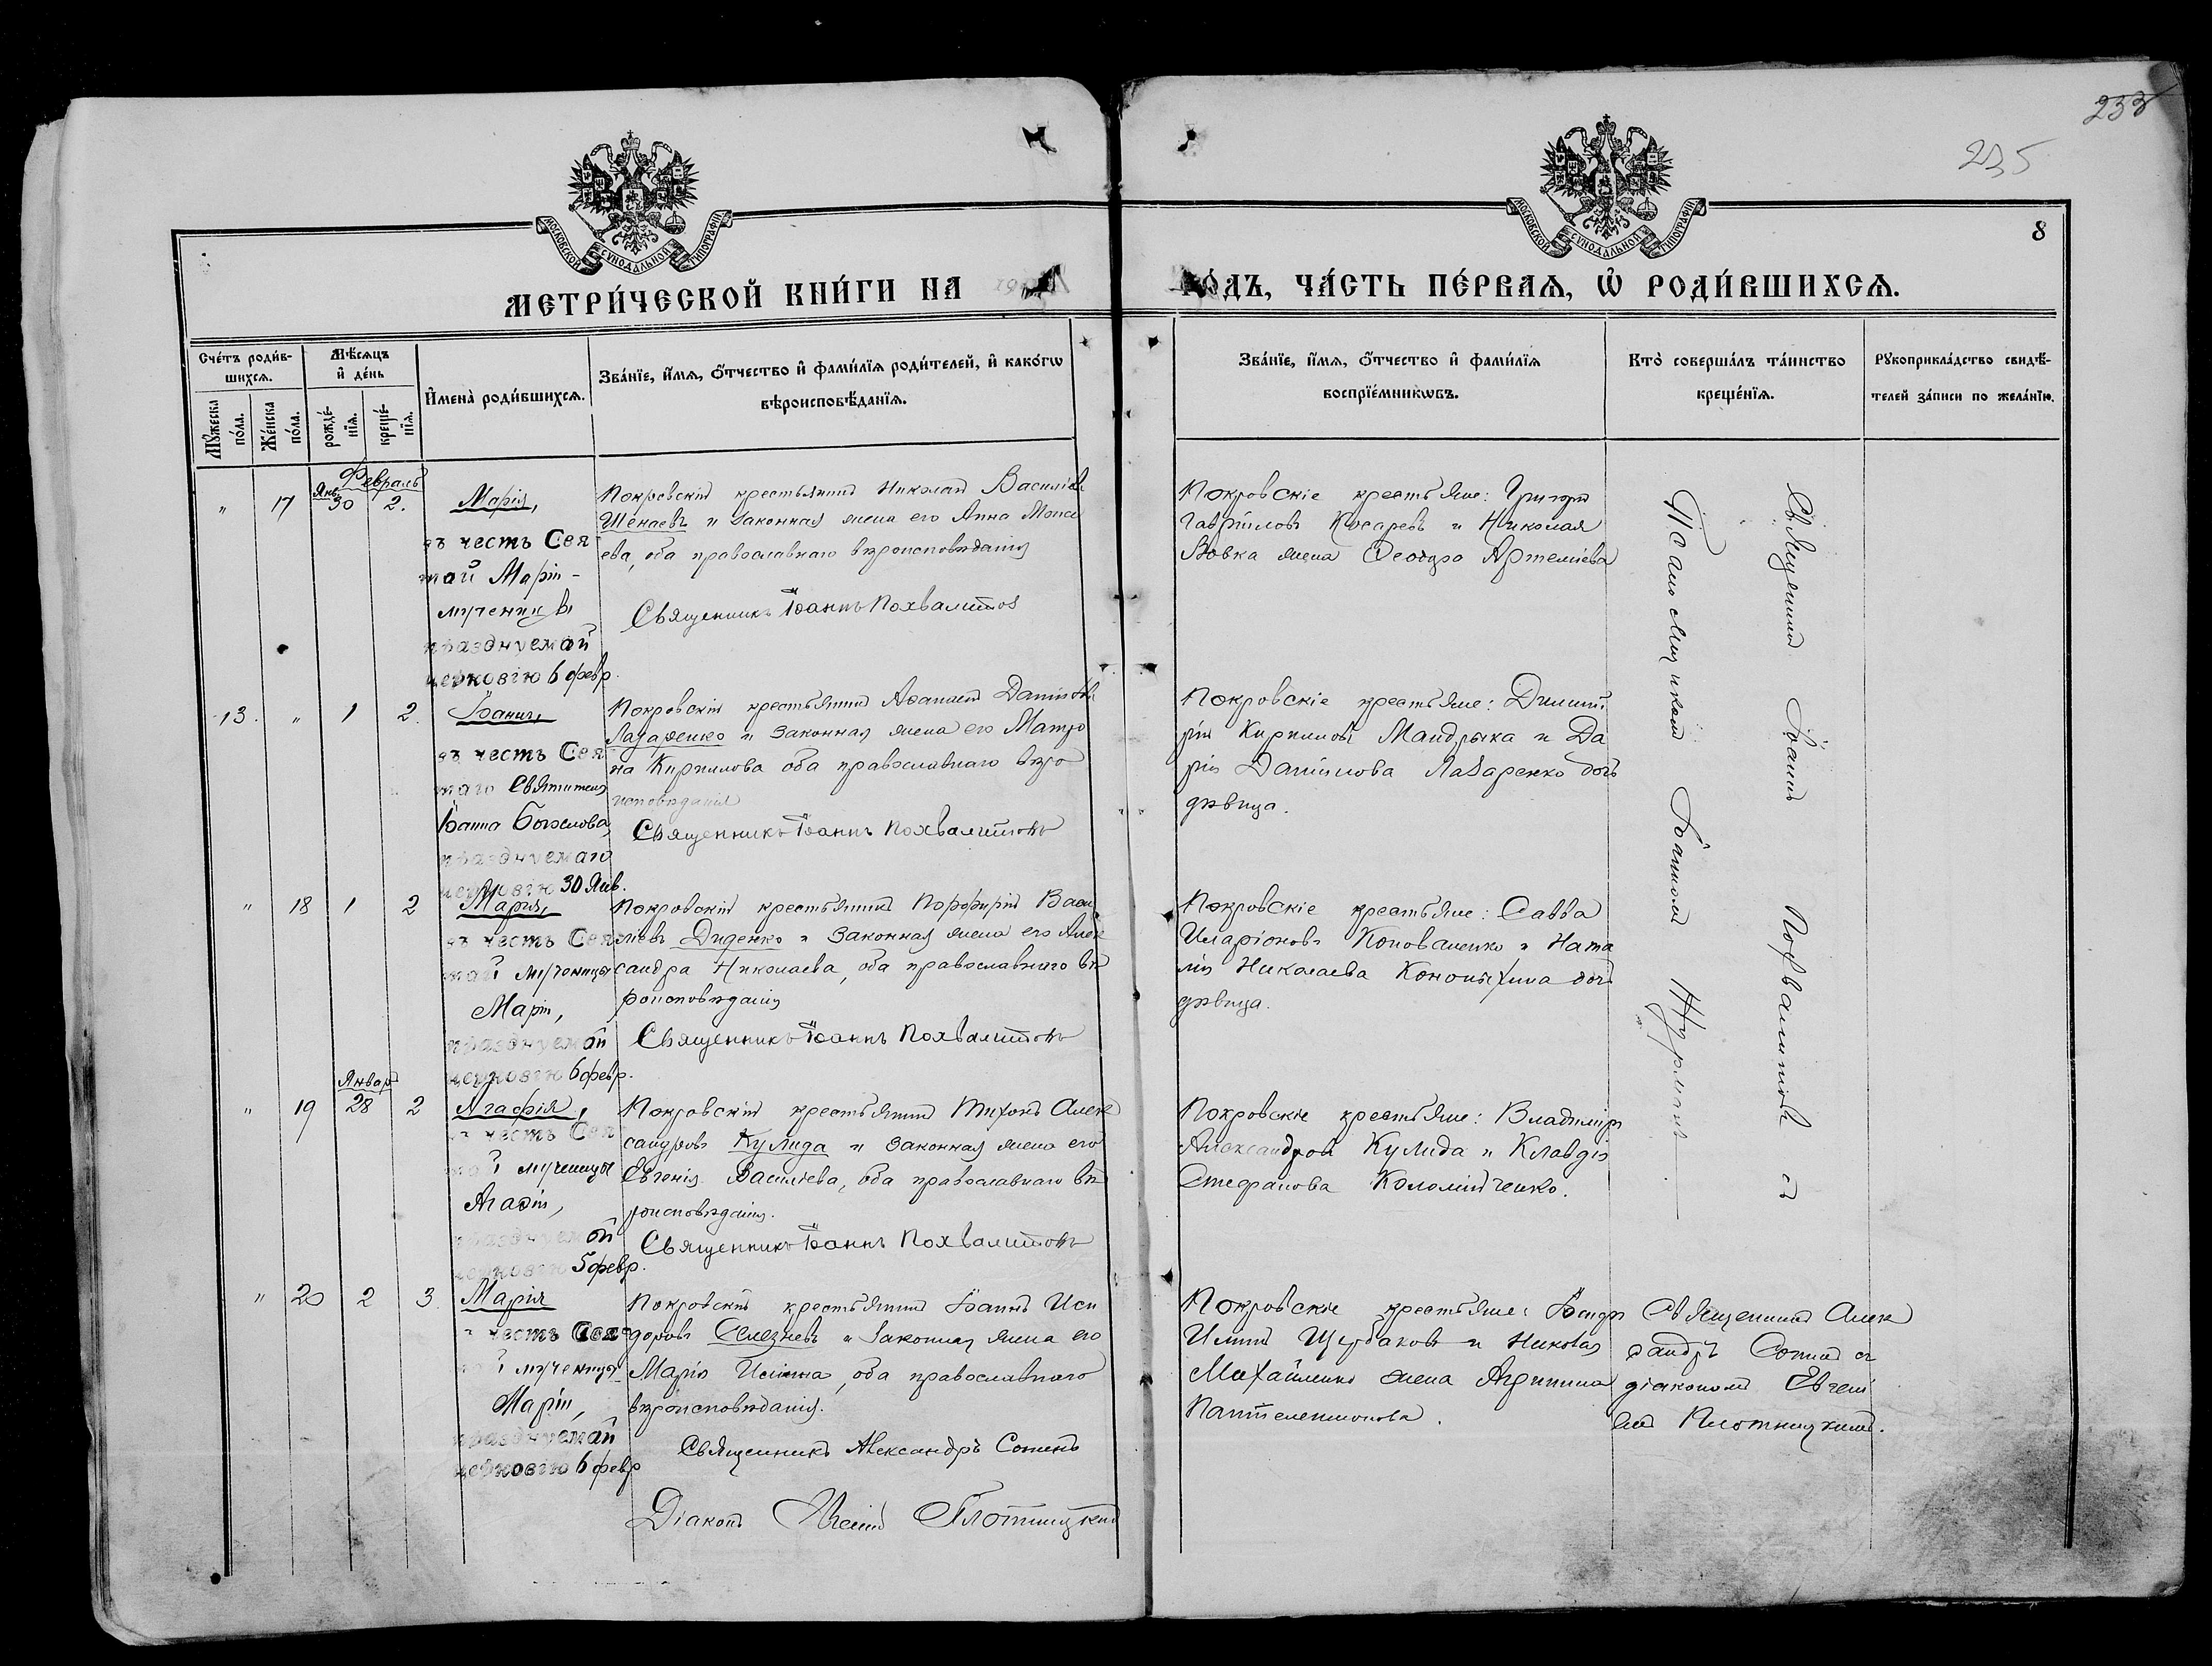 233
235
8
МОСКОВСКОЙ СѴНОДАЛЬНОЙ ТИПОГРАФІИ
МОСКОВСКОЙ СѴНОДАЛЬНОЙ ТИПОГРАФІИ
МЕТРИ́ЧЕСКОЙ КНИ́ГИ НА
ГО́ДЪ, ЧА́СТЬ ПЕ́РВАѦ, Ѡ҆ РОДИ́ВШИХСѦ.
Сче́тъ роди́в-
шихсѧ.
Мѹ́жеска по́ла.
Же́нска по́ла.
Мѣ́сѧцъ
и҆ де́нь
рожде́-
нїѧ.
креще́-
нїѧ.
И҆мена̀ роди́вшихсѧ.
Зва́нїе, и҆́мѧ, ѻ҆́тчество и҆ фами́лїѧ роди́телей, и҆ како́гѡ
вѣроисповѣ́данїѧ.
Зва́нїе, и҆́мѧ, ѻ҆́тчество и҆ фами́лїѧ
воспрїе́мникѡвъ.
Кто̀ соверша́лъ та́инство
креще́нїѧ.
Рꙋкоприкла́дство свидѣ́-
телей за́писи по жела́нїю.
Февраль
" 17 Янв. 30 2.
Марія,
въ честь Свя
той Маріи -
мученицы
празднуемой
церковію 6 февр.
Покровскій крестьянинъ Николай Василіев
Шенаевъ и законная жена его Анна Моисе
ева, оба православнаго вѣроисповѣданія
Священникъ Іоаннъ Похвалитов
Покровскіе крестьяне: Григорій
Гавріиловъ Косаревъ и Николая
Вовка жена Ѳеодора Артеміева
13. " 1 2.
Іоаннъ,
въ честь Свя
таго Святителя
Іоанна Богослова,
празднуемаго
церковію 30 Янв.
Покровскій крестьянинъ Аѳанасій Даніилов
Лазаренко и законная жена его Матро
на Кириллова оба православнаго вѣро
исповѣданія
Священникъ Іоаннъ Похвалитовъ
Покровскіе крестьяне: Димит
рій Кирилловъ Мандрыка и Да
рія Даніилова Лазаренко дочь
дѣвица.
" 18 1 2
Марія,
въ честь Свя
той мученицы
Маріи,
празднуемой
церковію 6 февр.
Покровскій крестьянинъ Порфирій Васи
ліевъ Диденко и законная жена его Алек
сандра Николаева, оба православнаго вѣ
роисповѣданія
Священникъ Іоаннъ Похвалитовъ
Покровскіе крестьяне: Савва
Иларіоновъ Коноваленко и Ната
лія Николаева дочь
дѣвица.
Январ
" 19 28 2
Агафія,
въ честь Свя
той мученицы
Агафіи,
празднуемой
церковію 5 февр.
Покровскій крестьянинъ Тихонъ Алек
сандровъ Кулида и законная жена его
Евгенія Василіева, оба православнаго вѣ
роисповѣданія.
Священникъ Іоаннъ Похвалитовъ
Покровскіе крестьяне: Владиміръ
Александров Кулида и Клавдія
Стефанова Коломійченко.
Священникъ Іоаннъ Похвалитовъ съ
Псаломщикомъ Іоанномъ
" 20 2 3.
Марія
въ честь Свя
той мученицы
Маріи,
празднуемой
церковію 6 февр
Покровскій крестьянинъ Іоаннъ Иси
доровъ Селезневъ и законная жена его
Марія Ильина, оба православнаго
вѣроисповѣданія.
Священникъ Александръ Сотинъ
Діаконъ Евгеній Плотницкій
Покровскіе крестьяне:
Ильинъ Щербаковъ и Николая
Михайленко жена Агрипина
Пантелеимонова.
Священникъ Алек
сандръ Сотинъ съ
діакономъ Евгені
емъ Плотницкимъ.